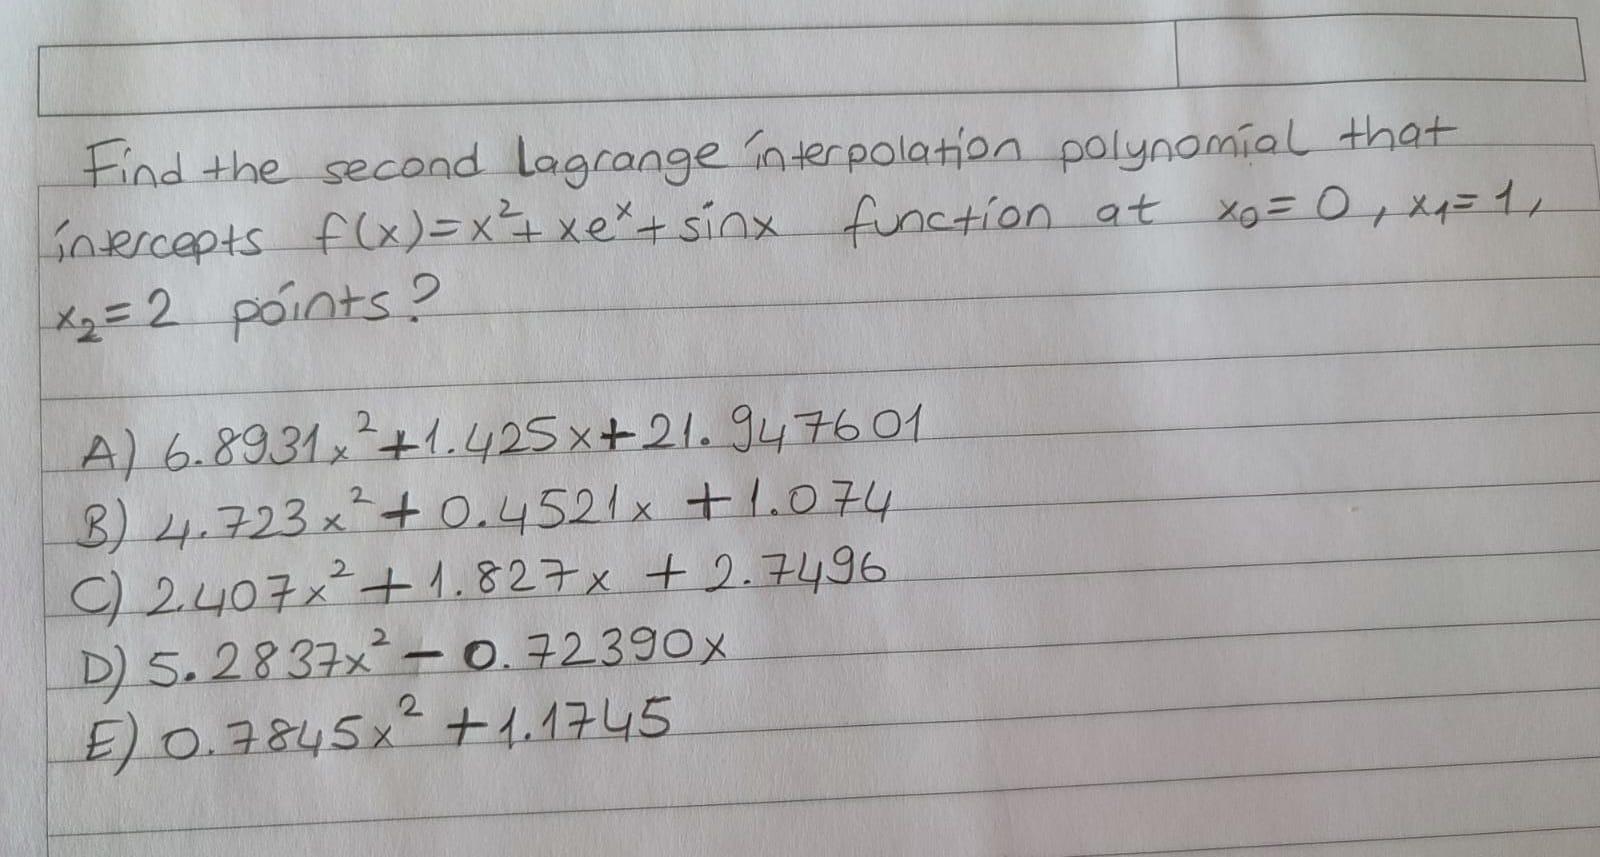 Find the second Lagrange interpolation polynomial that
intercepts f(x)=x²+xeˣ+sinx function at x₀=0, x₁=1,
x₂=2 points?
A) 6.8931x²+1.425x+21.947601
B) 4.723x²+0.4521x+1.074
C) 2.407x²+1.827x+2.7496
D) 5.2837x²-0.72390x
E) 0.7845x²+1.1745